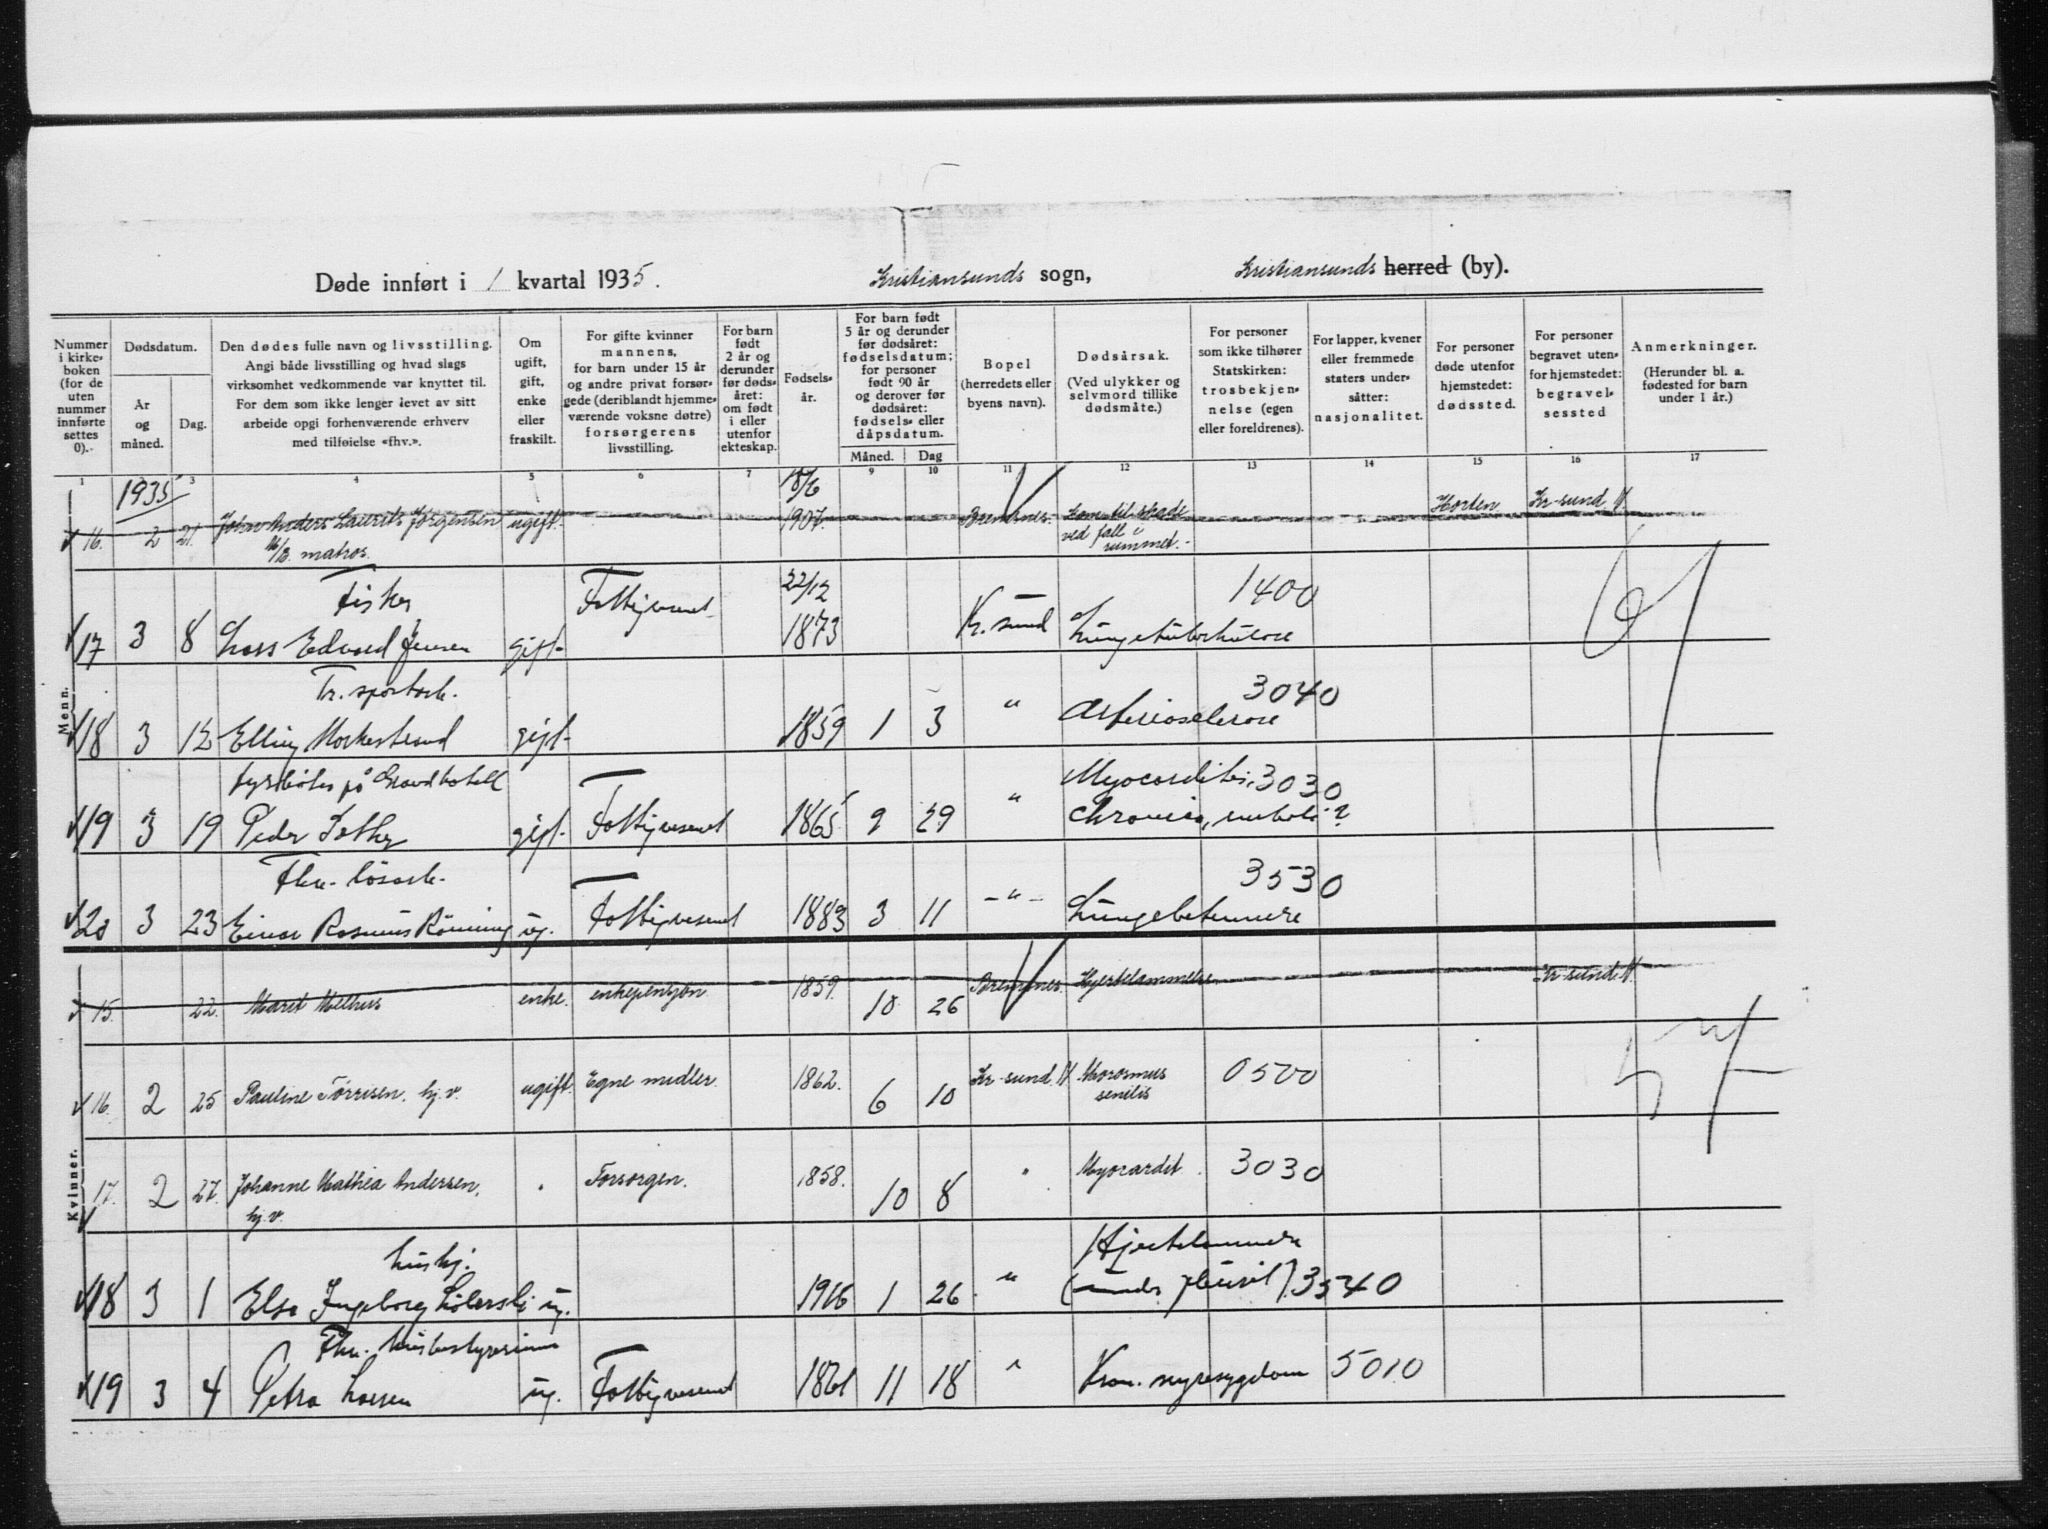 Døde innført i 1 kvartal 1935. Kristiansunds sogn, Kristiansunds herred (by).
Nummer i kirkeboken (for de uten nummer innførte settes 0).
Dødsdatum.
År og måned.
Dag.
Den dødes fulle navn og livsstilling. Angi både livsstilling og hvad slags virksomhet vedkommende var knyttet til. For dem som ikke lenger levet av sitt arbeide opgi forhenværende erhverv med tilføielse «fhv.».
Om ugift, gift, enke eller fraskilt.
For gifte kvinner mannens, for barn under 15 år og andre privat forsørgede (deriblandt hjemmeværende voksne døtre) forsørgerens livsstilling.
For barn født 2 år og derunder før dødsåret: om født i eller utenfor ekteskap.
Fødselsår.
For barn født 5 år og derunder før dødsåret: fødselsdatum; for personer født 90 år og derover før dødsåret: fødsels- eller dåpsdatum.
Måned. Dag
Bopel (herredets eller byens navn).
Dødsårsak. (Ved ulykker og selvmord tillike dødsmåte.)
For personer som ikke tilhører Statskirken: trosbekjennelse (egen eller foreldrenes).
For lapper, kvener eller fremmede staters undersåtter: nasjonalitet.
For personer døde utenfor hjemstedet: dødssted.
For personer begravet utenfor hjemstedet: begravelsessted
Anmerkninger. (Herunder bl. a. fødested for barn under 1 år.)
1 3 4 5 6 7 8 9 10 11 12 13 14 15 16 17
1935 18/6
16. 2 21. Johan Anders Laurits Jørgensen ugift. 1907. Bremsnes. Kom til skade Horten Kr.sund N
matros. ved fall i rummet.
Menn.
Fisker Fattigvesenet 22/12 1400
17 3 8 Lars Edvard Jensen gift 1873 Kr. sund Lungetuberkulose
Tr.sportarb. 3040
18 3 12 Elling gift 1859 1 3 " Arteriosclerose
Fyrbøter på Grand hotell Myocarditis 3030
19 3 19 Peder gift Fattigvesenet 1865 9 29 " chronica, emboli?
Fhv. løsarb. 3530
20 3 23 Einar Rasmus Rönning ug. Fattigvesenet 1883 3 11 " Lungebetennelse
Kvinner.
15. 22. Maret Melhus enke. enkepensjon 1859. 10 26 Bremsnes. Hjertelammelse Kr.sund N.
16. 2 25 Pauline Tørrisen, hj.v. ugift. Egne midler. 1862. 6 10 Kr.sund. N Marasmus senilis 0500
17. 2 27. Johanne Mathea Andersen, hj.v. " Forsorgen. 1858. 10 8 " Myocardit. 3030
hushj. Hjertelammelse
18 3 1 Elsa Ingeborg ug. 1916 1 26 " (under pleurit) 3540
Fhv. husbestyrerinne
19 3 4 Petra Larsen ug. Fattigvesenet 1861 11 18 " Kron. nyresygdom 5010